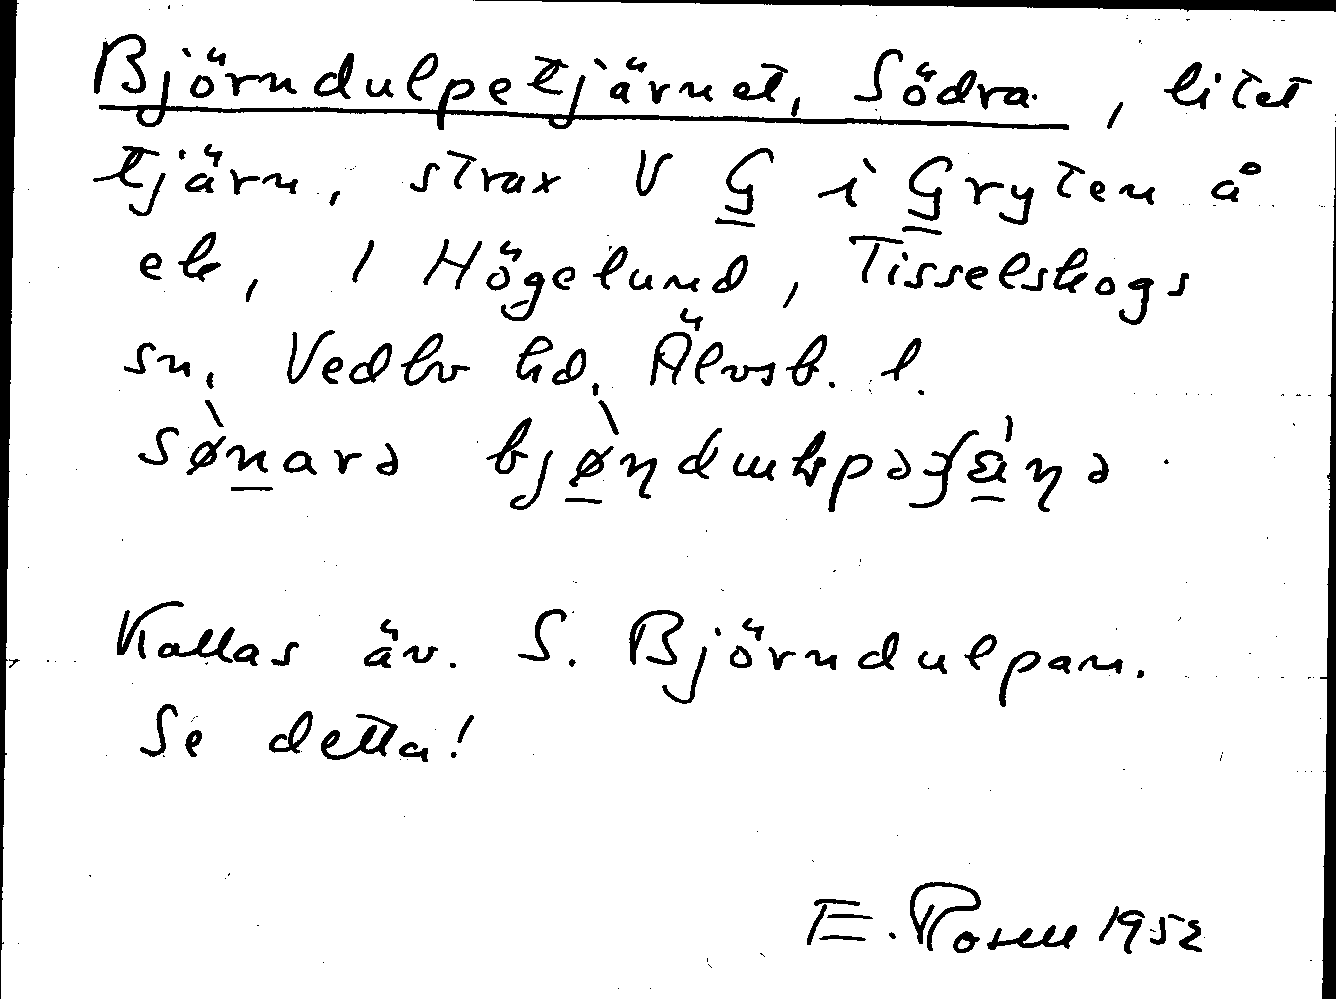 Björndulpetjärnet, Södra, litet
tjärn, strax V G i Gryten å
ek, 1 Högelund, Tisselskogs
sn, Vedbo hd, Älvsb. l.
Kallas äv. S. Björndulpan.
Se detta!
E. Rosell 1952